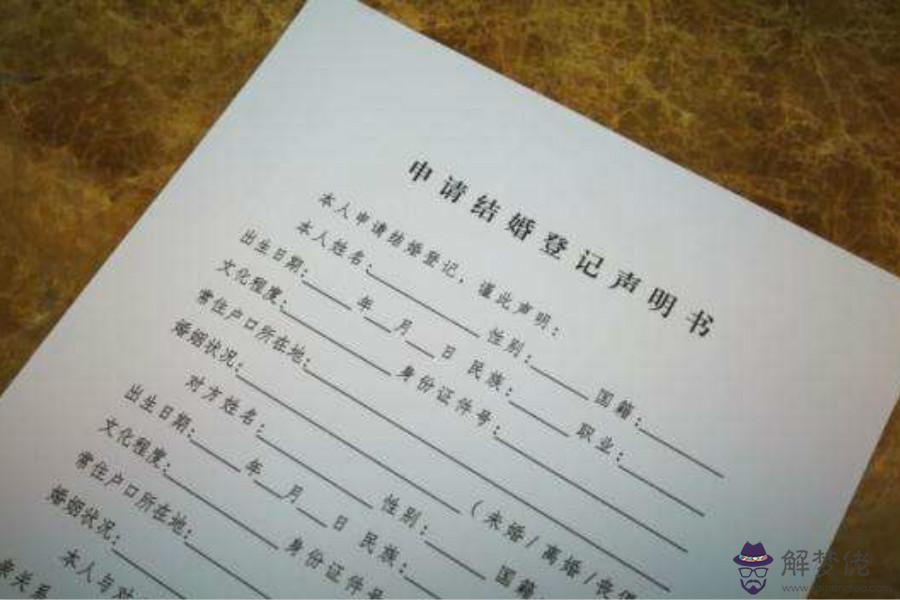 申请结婚登记声明书
本人申请结婚登记，谨此声明：
本人姓名：____ 性别：____ 国籍：____
出生日期：____年__月__日 民族：____ 职业：____
文化程度：____ 身份证件号：____
常住户口所在地：____
婚姻状况：____（未婚/离婚/丧偶
对方姓名：____ 性别：____ 国籍
出生日期：____年__月__日 民族：
文化程度：____ 身份证件号
常住户口所在地：____
婚姻状况：____
本人与对
亲关系
解梦佬